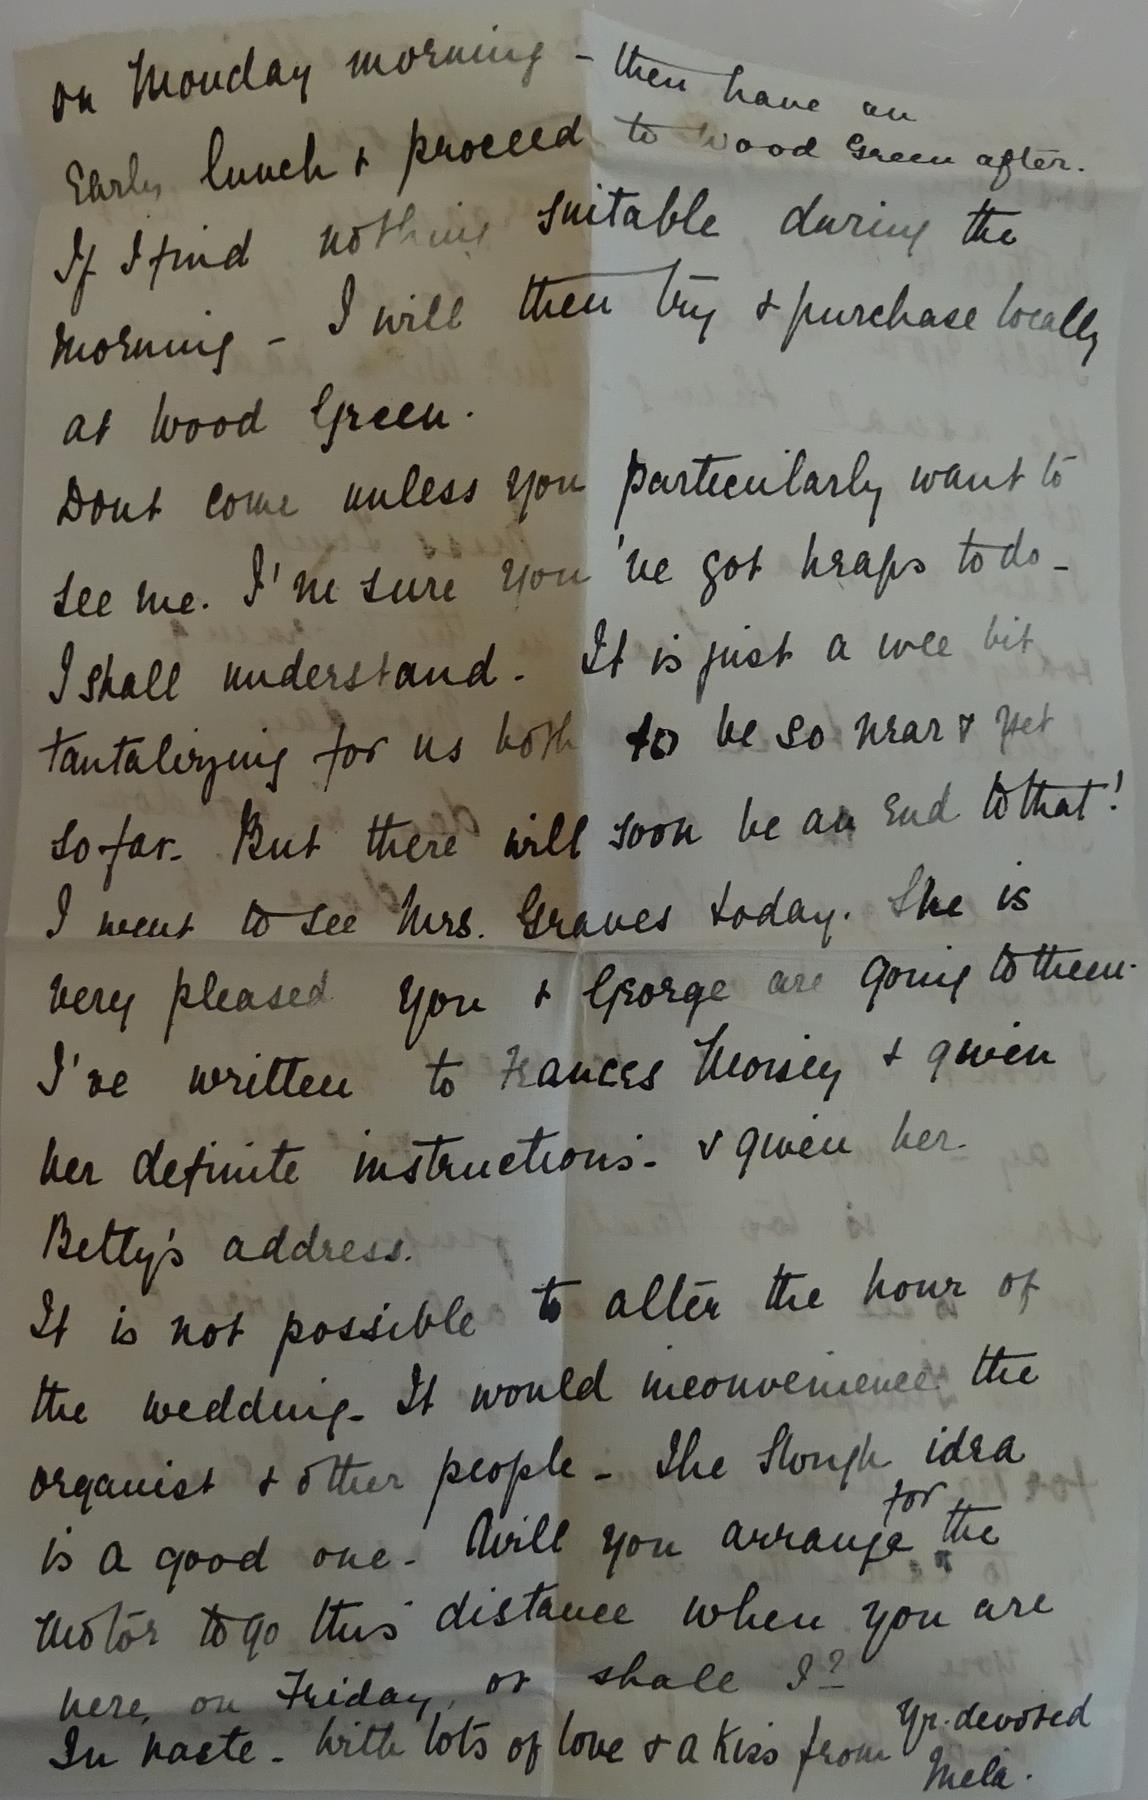 on Monday morning - then have an
Early lunch & proceed to Wood Green after.
If I find nothing suitable during the
morning - I will then try & purchase locally
at Wood Green.
Dont come unless you particularly want to
see me. I'm sure you've got heaps to do -
I shall understand. It is just a wee bit
tantalizing for us both to be so near & yet
so far. But there will soon be an End to that!
I went to see Mrs. Graves today. She is
very pleased you & George are going to them.
I've written to Frances & given
her definite instructions - & given her
Betty's address.
It is not possible to alter the hour of
the wedding - It would inconvenience the
organist & other people - The Slough idea
is a good one - Will you arrange for the
motor to go this distance when you are
here, on Friday, or shall I?
In haste - With lots of love & a kiss from Yr. devoted
Mela.